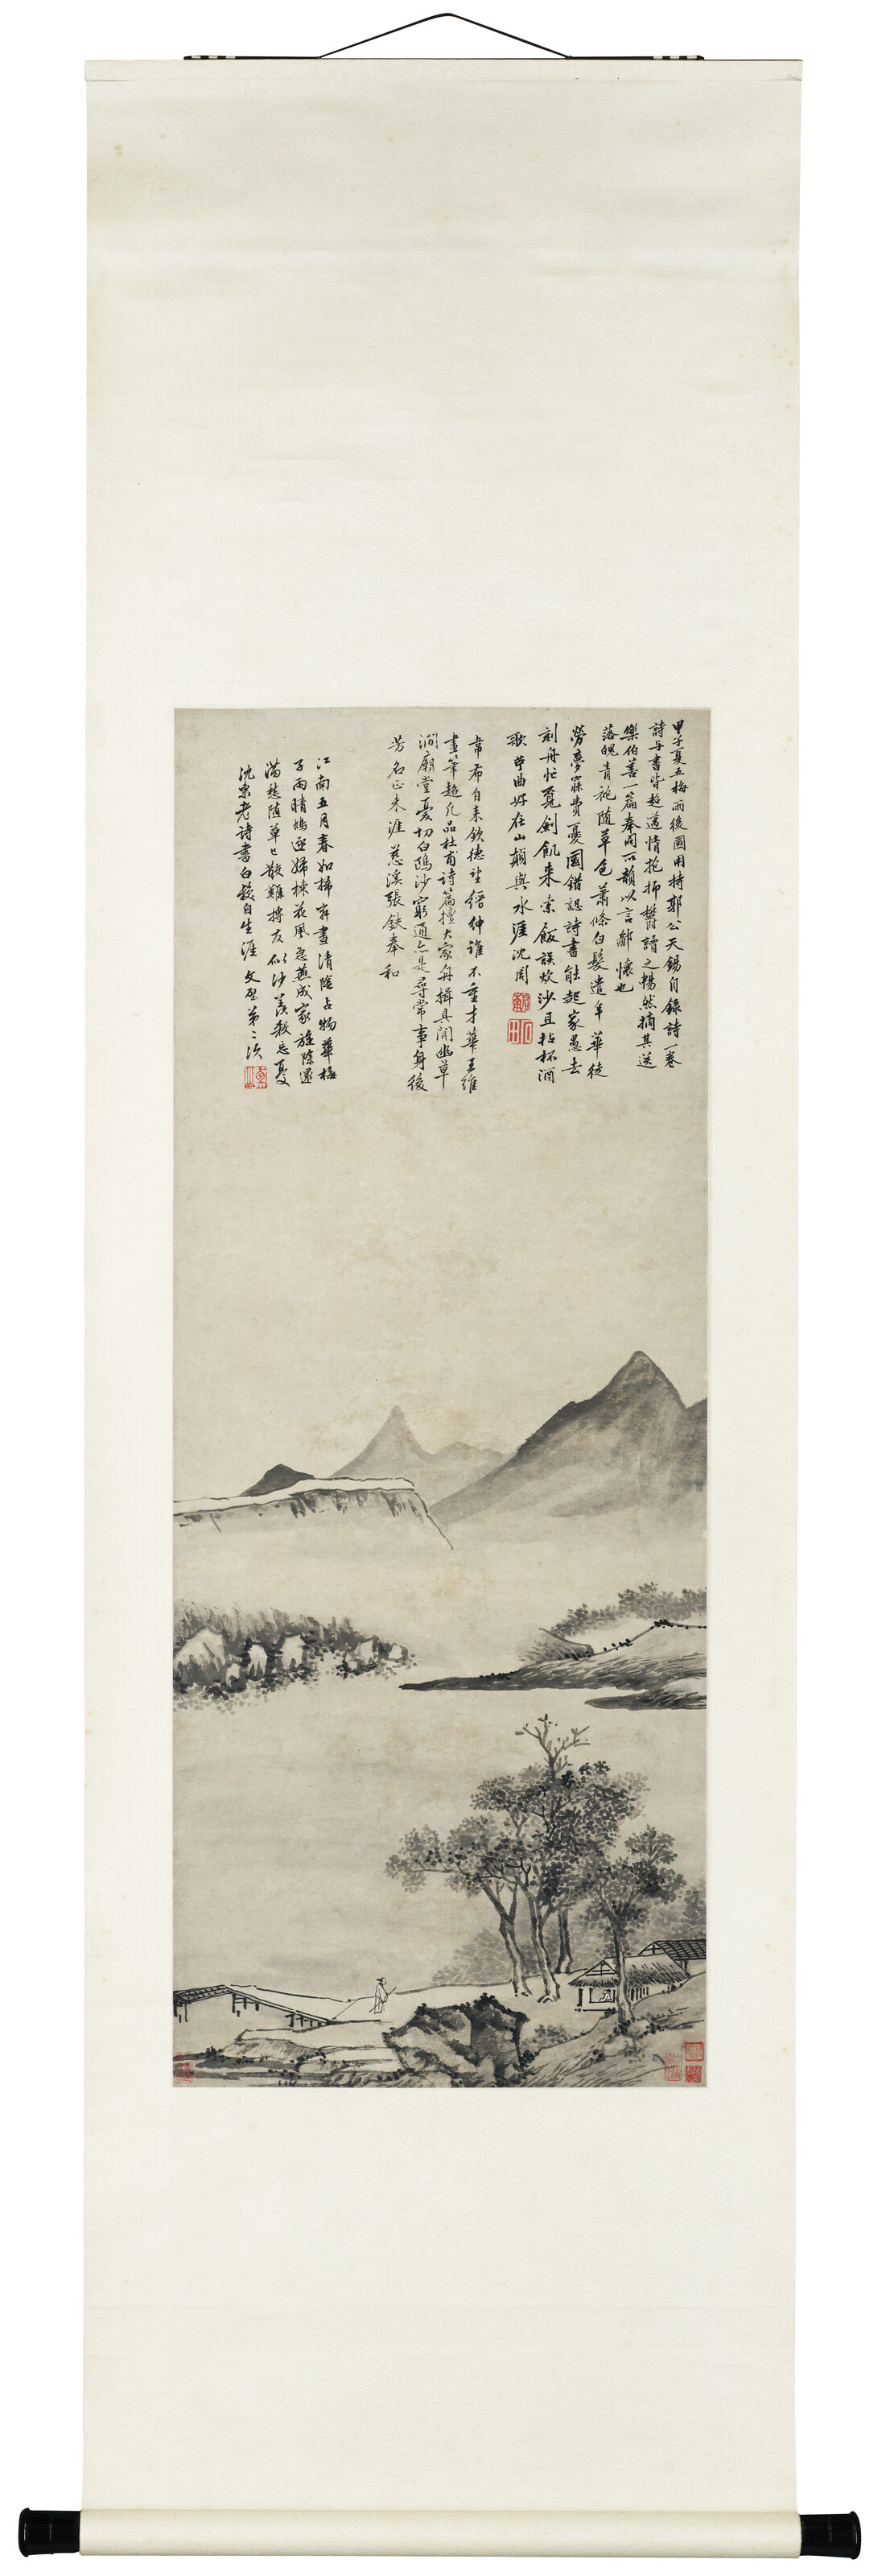 甲子夏五梅雨後國用持郭公天錫自錄詩一卷
詩与書皆超邁情抱抑鬱讀之暢然摘其送
樂伯善一篇奉同所韻以言鄙懷也
落魄青袍隨草色蕭條白髮遣年華徒
勞夢寐費憂國錯認詩書能起家愚去
刻舟忙覓劍飢來索飯誤炊沙且拈杯酒
歌皆曲好在山顛與水涯沈周
韋布自来欽德望搢紳誰不重才華王維
畫筆超凡品杜甫詩篇擅大家舟楫具閒幽草
澗廟堂憂切白鷗沙窮通亦是尋常事身後
芳名正未涯慈溪張鈇奉和
江南五月春如掃弄畫清陰占物華梅
子雨晴鳩逐婦楝花風急燕成家旅除還
滿愁隨草已散難摶友似沙羨殺忘憂
沈東老詩書白髮自生涯文璧第二次